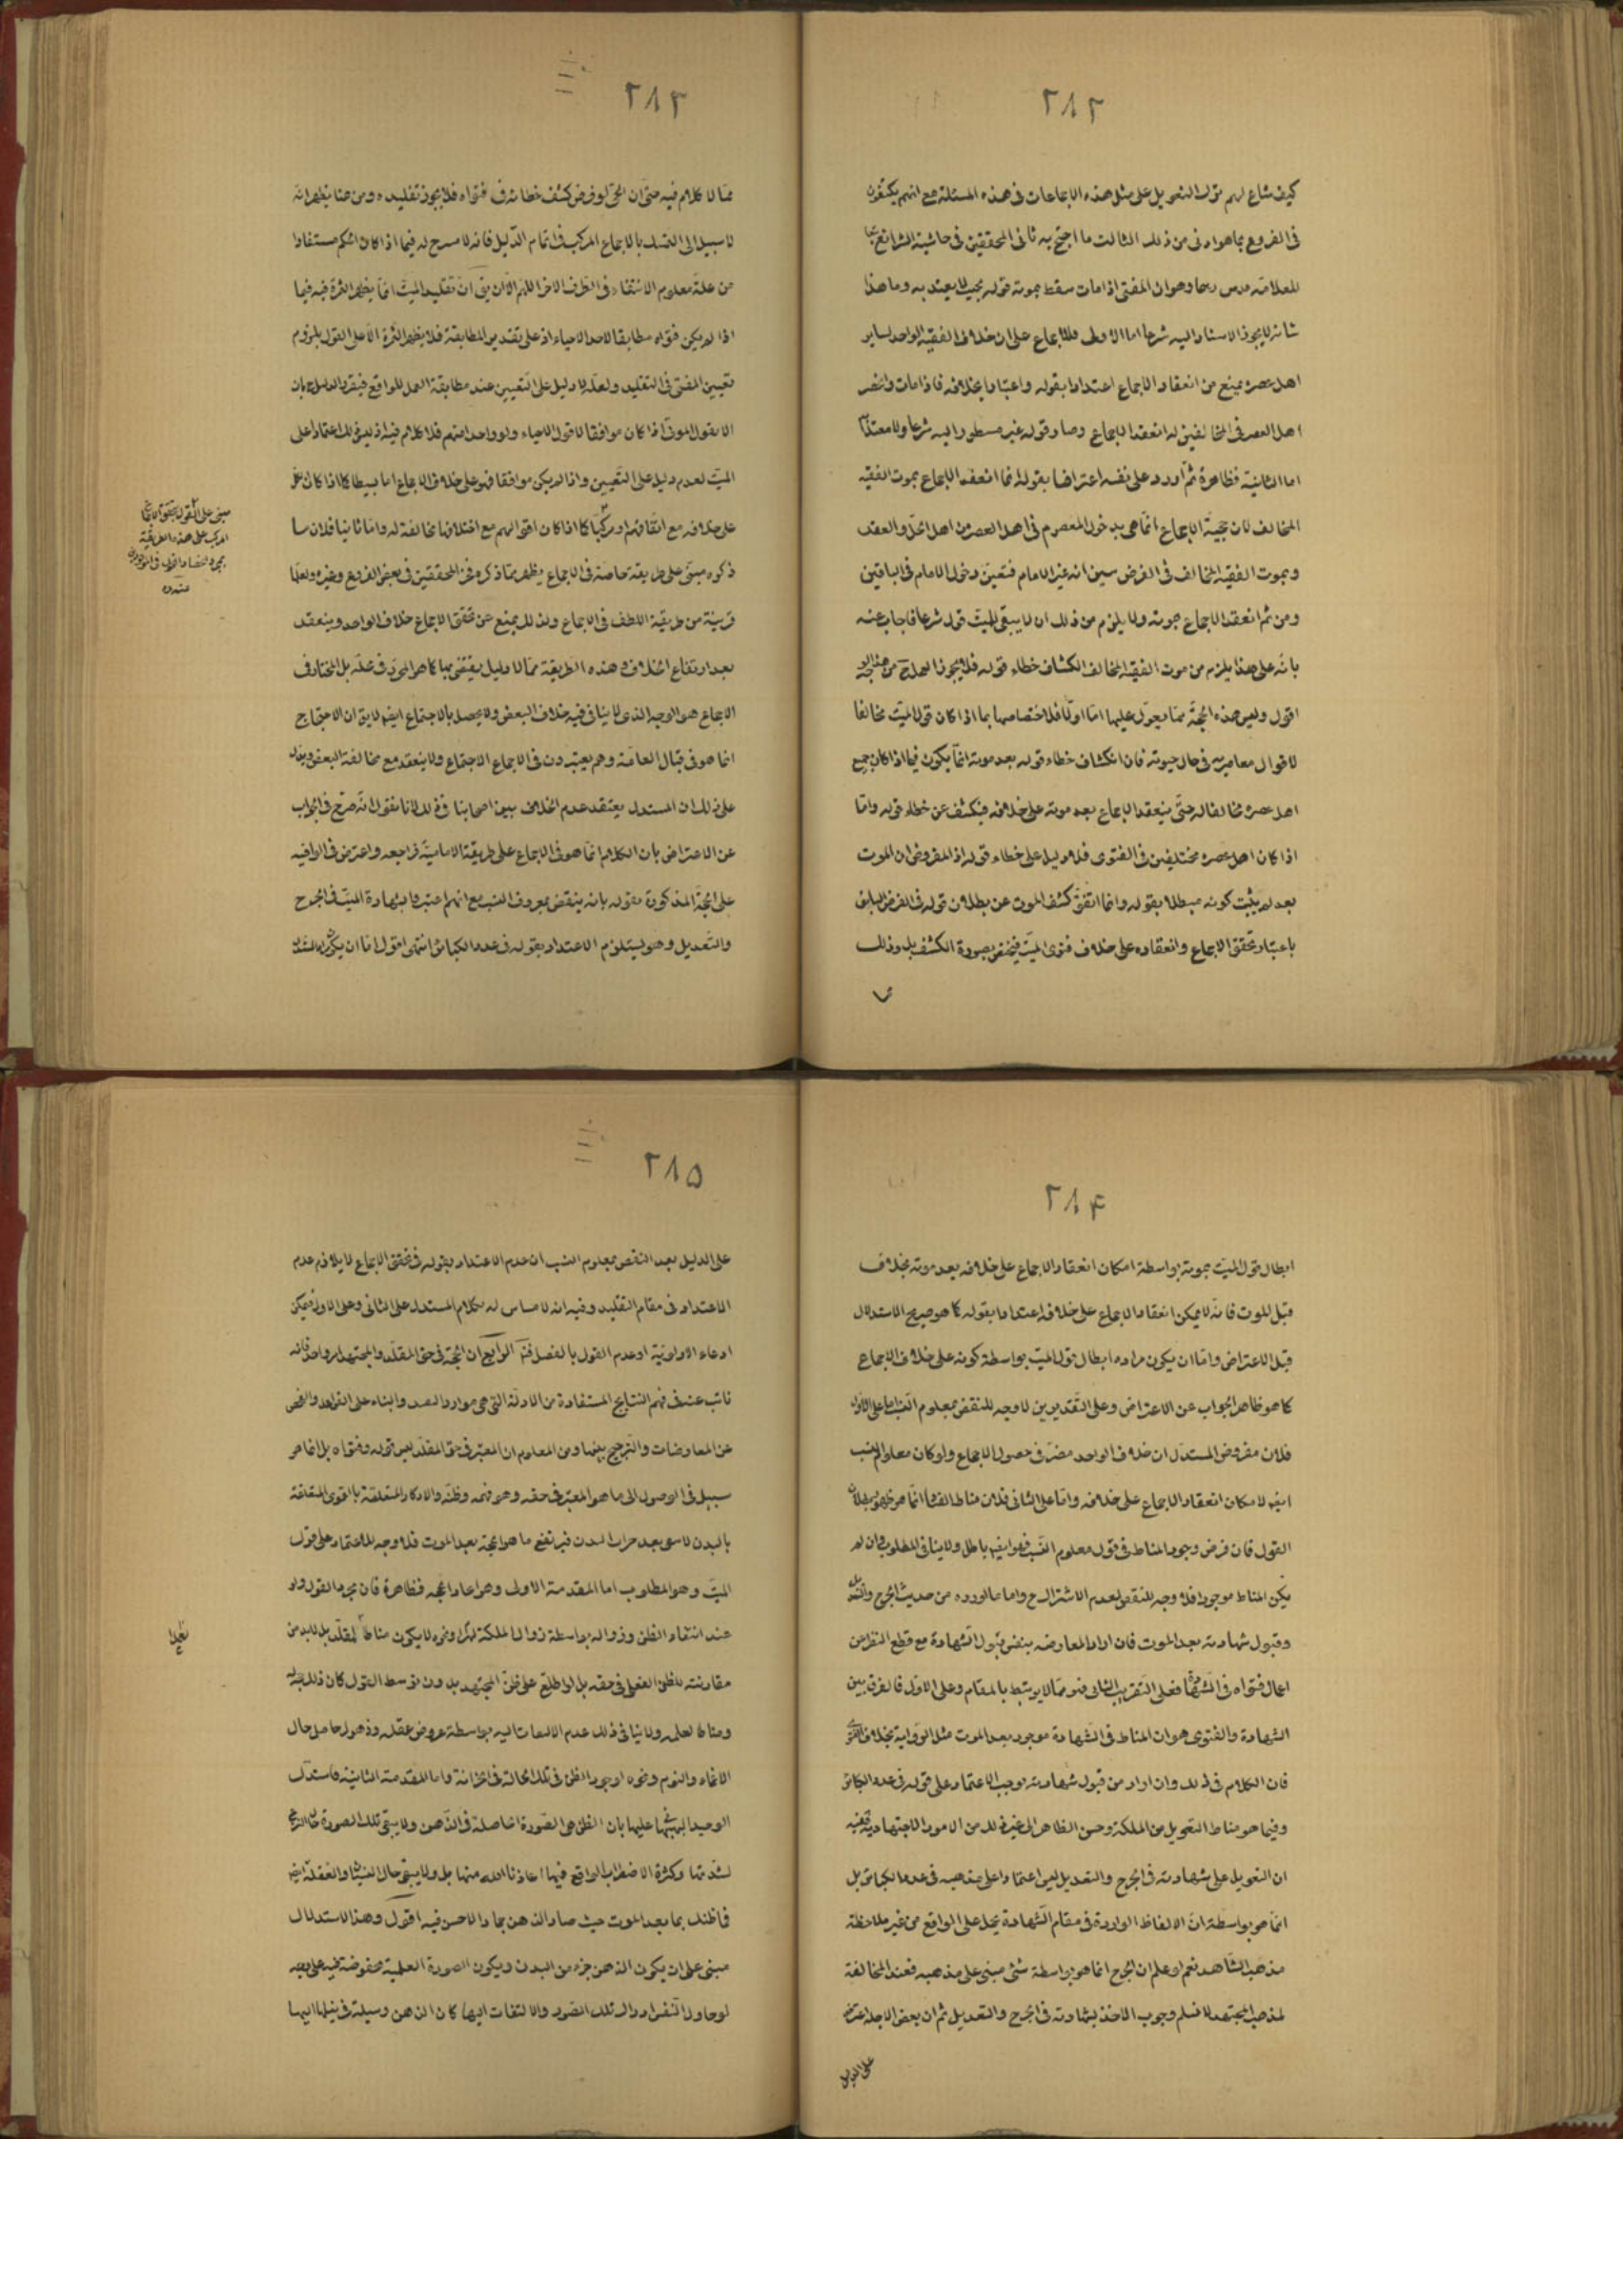 ٢٨٢
كيف شاع لهم ترك التعويل على مثل هذه الاجماعات فى هذه المسئلة مع انهم يكتفون
فى الفروع بما هو ادنى من ذلك الثالث ما احتج به ثانى المحققين فى حاشية الشرائع
للعلامة وهو ان المفتى اذا مات سقط بموته قوله بحيث لا يعتد به وما هذا
شانه لا يجوز الاستناد اليه شرعا اما الاولى فللاجماع على ان خلاف الفقيه الواحد لساير
اهل عصره يمنع من انعقاد الاجماع اعتدادا بقوله واعتبارا بخلافه فاذا مات وانحصر
اهل العصر فى المخالفين له انعقد الاجماع وصار قوله غير منظور اليه شرعا ولا معتدا
اما الثانية فظاهرة ثم اورد على نفسه اعتراضا بقوله انما انعقد الاجماع بموت الفقيه
المخالف لان حجية الاجماع انما هى بدخول المعصوم فى اهل العصر من اهل الحل والعقد
وبموت الفقيه المخالف فى الفرض تبين انه غير الامام فتعين دخول الامام فى الباقين
ومن ثم انعقد الاجماع بموته ولا يلزم من ذلك ان لا يبقى للميت قول شرعا فاجاب عنه
بانه على هذا يلزم من موت الفقيه المخالف انكشاف خطاء قوله فلا يجوز العمل به من هذا الوجه
اقول وليس هذه الحجة مما يعول عليها اما اولا فلاختصاصها بما اذا كان قول الميت مخالفا
لاقوال معاصريه فى حال حيوته فان انكشاف خطاء قوله بعد موته انما يكون فيما اذا كان جميع
اهل عصره مخالفا له حتى ينعقد الاجماع بعد موته على خلافه فيكشف عن خطاء قوله واما
اذا كان اهل عصره مختلفين فى الفتوى فلا دليل على خطاء قوله اذ المفروض ان الموت
بعد لم يثبت كونه مبطلا بقوله وانما اتفق كشف الموت عن بطلان قوله فى الفرض السابق
باعتبار تحقق الاجماع وانعقاده على خلاف فتوى الميت فيختص بصورة الكشف بل وذلك
٢٨٣
مما لا كلام فيه حتى ان الحى لو فرض كشف خطائه فى فتواه فلا يجوز تقليده ومن هنا يظهر انه
لا سبيل الى التمسك بالاجماع المركب فى اتمام الدليل فانه لا مسرح له فيما اذا كان الحكم مستفادا
من علة معلوم الانتفاء فى الطرف الاخر اللهم الا ان يق ان تقليد الميت انما يظهر الثمرة فيه فيما
اذا لم يكن فتواه مطابقا لاحد الاحياء اذ على تقدير المطابقة فلا يظهر الثمرة الا على القول بلزوم
تعيين المفتى فى التقليد ولعله لا دليل على التعيين عند مطابقة العمل للواقع فيقرر الدليل ح بان
الاقوال الموتى اذا كان موافقا لاقول الاحياء ولو واحد منهم فلا كلام فيه اذ ليس ذلك اعتمادا على
الميت لعدم دليل على التعيين واذا لم يكن موافقا فهو على خلاف الاجماع اما بسيطا كما اذا كان
على خلافه مع اتفاقهم او مركبا كما اذا كان اقوالهم مع اختلافها مخالفة له واما ثانيا فلان ما
ذكره مبنى على طريقة خاصة فى الاجماع يظهر مما ذكره فخر المحققين فى بعض الفروع وغيره ولعلها
قريبة من طريقة اللطف فى الاجماع ولذلك يمنع عن تحقق الاجماع خلاف الواحد وينعقد
بعد ارتفاع الخلاف وهذه الطريقة مما لا دليل يقتضى بها كما هو المحرر فى محله بل المختار فى
الاجماع هو الوجه الذى لا ينافى فيه خلاف البعض ولا يحصل بالاجتماع ايضا لا يق ان الاحتجاج
انما هو فى قبال العامة وهم يعتبرون فى الاجماع الاجتماع ولا ينعقد مع مخالفة البعض ويدل
على ذلك ان المستدل يعتقد عدم الخلاف بين اصحابنا فى ذلك لانا نقول انه صرح فى الجواب
عن الاعتراض بان الكلام انما هو فى الاجماع على طريقة الامامية فراجعه واعترض فى الوافيه
على الحجة المذكورة بقوله بانه ينتقض بمعروف النسب مع انهم اعتبروا شهادة الميت فى الجرح
والتعديل وهو يستلزم الاعتداد بقوله فى عدد الكبائر انتهى اقول اما ان يكون
مبنى على القول بتحقق الاجماع
المركب على هذه الطريقة
منه
٢٨٤
ابطال قول الميت بموته بواسطة امكان انعقاد الاجماع على خلافه بعد موته بخلاف
قبل الموت فانه لا يمكن انعقاد الاجماع على خلافه اعتدادا بقوله كما هو صريح الاستدلال
قبل الاعتراض واما ان يكون مراده ابطال قول الميت بواسطة كونه على خلاف الاجماع
كما هو ظاهر الجواب عن الاعتراض وعلى التقديرين لا وجه للنقض بمعلوم النسب اما على الاول
فلان مفروض المستدل ان خلاف الواحد مضر فى حصول الاجماع ولو كان معلوم النسب
ايضا لامكان انعقاد الاجماع على خلافه واما على الثانى فلان مناط الفساد انما هو ظهور بطلان
القول فان فرض وجود المناط فى قول معلوم النسب فهو ايضا باطل ولا ينافى المطلوب وان لم
يكن المناط موجودا فلا وجه للنقض لعدم الاشتراك ح واما ما اورده من حديث الجرح والتعديل
وقبول شهادته بعد الموت فان اراد المعارضة بنفس قبول الشهادة مع قطع النظر عن
اعمال فتواه فى الشهادة فعلى التقريب الثانى فهو مما لا يرتبط بالمقام وعلى الاول فالفرق بين
الشهادة والفتوى هو ان المناط فى الشهادة موجود بعد الموت مثل الرواية بخلاف الفتوى
فان الكلام فى ذلك وان اراد من قبول شهادته يوجب الاعتماد على قوله فى عدد الكبائر
وفيما هو مناط التعويل من الملكة وحسن الظاهر الى غير ذلك من الامور الاجتهادية ففيه
ان التعويل على شهادته فى الجرح والتعديل ليس اعتمادا على مذهبه فى عدد الكبائر بل
انما هو بواسطة ان الالفاظ الواردة فى مقام الشهادة يحمل على الواقع من غير ملاحظة
مذهب الشاهد نعم لو علم ان الجرح انما هو بواسطة شئ مبنى على مذهبه فعند المخالفة
لمذهب المجتهد لا نسلم وجوب الاخذ بشهادته فى الجرح والتعديل ثم ان بعض الاجلة اعترض
على الدليل
٢٨٥
على الدليل بعد النقض بمعلوم النسب ان عدم الاعتداد بقوله فى تحقق الاجماع لا يلازم عدم
الاعتداد فى مقام التقليد وفيه انه لا مساس له بكلام المستدل على الثانى وعلى الاول فيمكن
ادعاء الاولوية او عدم القول بالفصل فتم الرابع ان الحجة فى حق المقلد والمجتهد امر واحد فانه
نائب عنه فى فهم النتايج المستفادة من الادلة التى هى موارد العمد والبناء على القواعد والفحص
عن المعارضات والترجيح بينها ومن المعلوم ان المعتبر فى حق المقلد ليس قوله وفتواه بل انما هو
سبيل فى الوصول الى ما هو المعتبر فى حقه وهو فهمه وظنه والادراك المتعلقة بالقوى المتعلقة
بالبدن لا يبقى بعد خراب البدن فيرتفع ما هو الحجة بعد الموت فلا وجه للاعتماد على قول
الميت وهو المطلوب اما المقدمة الاولى وهو اتحاد الحجه فظاهرة فان مجرد القول ولو
عند انتفاء الظن وزواله بواسطة زوال الملكة لهرم ونحوه لا يكون مناطا للمقلد بل لا بد من
مقارنته للظن الفعلى فى حقه بل لو اطلع على ظن المجتهد بدون توسط القول كان ذلك حجة
ومناطا لعمله ولا ينافى ذلك عدم الالتفات اليه بواسطة عروض غفلة وذهول حاصل حال
الاغماء والنوم ونحوه لوجود الظن فى تلك الحالة فى الخزانة واما المقدمة الثانية فاستدل
الوحيد البهبهانى عليها بان الظن هى الصورة الحاصلة فى الذهن ولا يبقى تلك الصورة حال النزع
لشدتها وكثرة الاضطراب الواقع فيها اعاذنا الله منها بل ولا يبقى حال النسيان والغفلة ايضا
فما ظنك بما بعد الموت حيث صار الذهن جمادا لا حس فيه اقول وهذا الاستدلال
مبنى على ان يكون الذهن جزء من البدن ويكون الصورة العلمية محفوظة فيه على وجه
لو حاول النفس ادراك تلك الصور والالتفات اليها كان الذهن وسيلة فى نيلها اليها